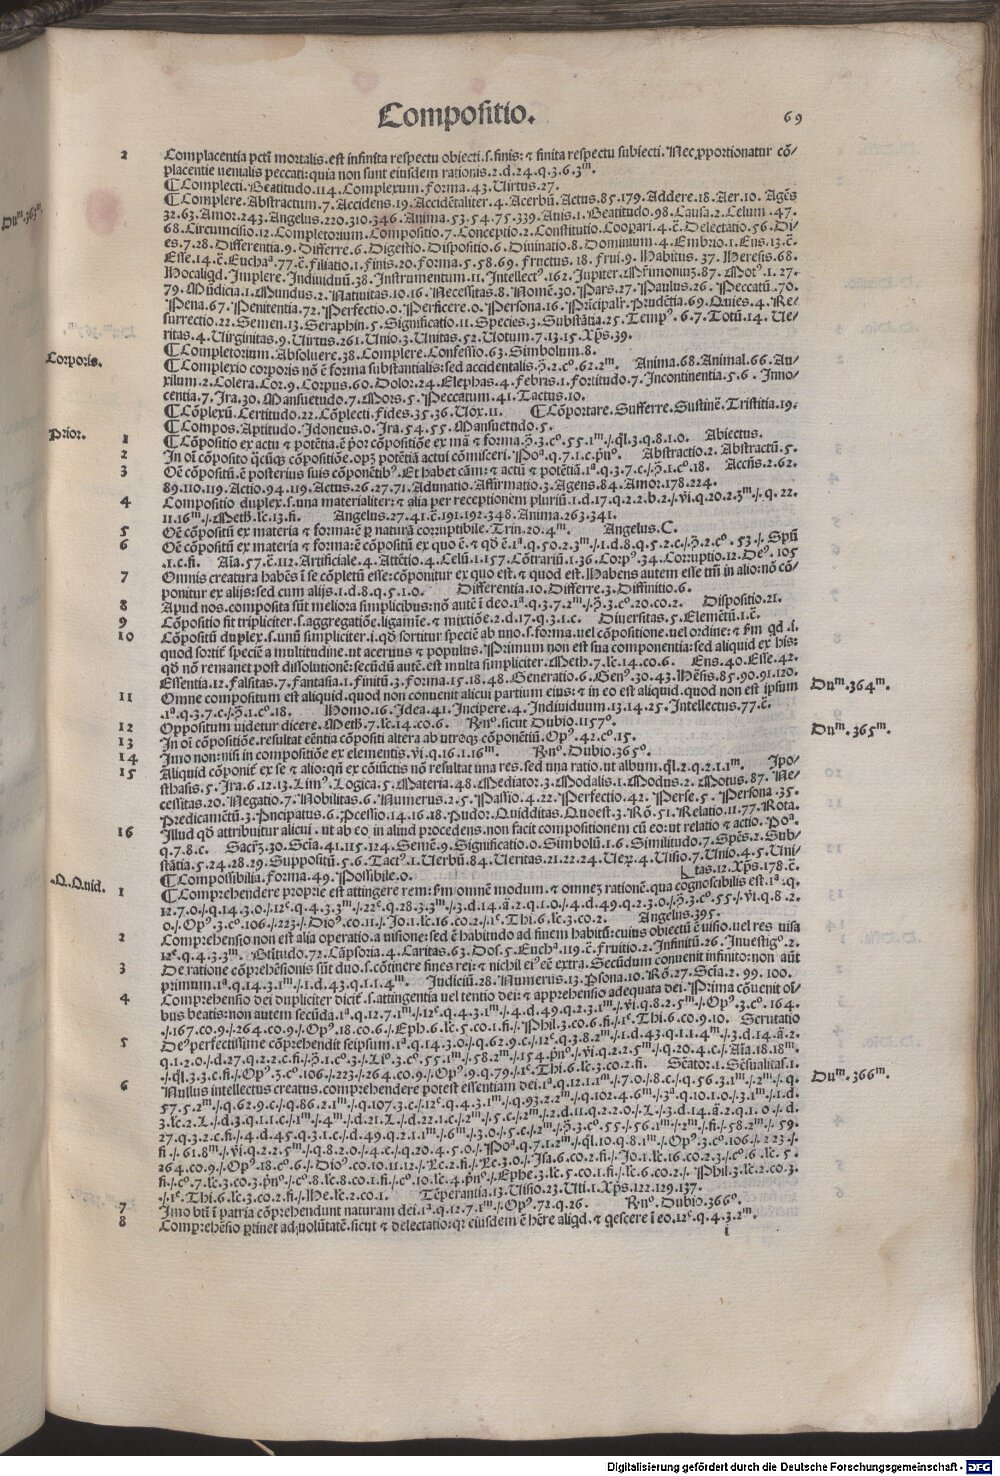 Compositio.
69
2 Complacentia pcti mortalis. est infinita respectu obiecti. s. finis: ⁊ finita respectu subiecti. Nec proportionatur cō/
placentie uenialis peccati: quia non sunt eiusdem rationis. 2. d. 24. q. 3. 6. 3m.
¶ Complecti. Beatitudo. 114. Complexum. Forma. 43. Uirtus. 27.
¶ Complere. Abstractum. 7. Accidens. 19. Accidētaliter. 4. Acerbū. Actus. 85. 179. Addere. 18. Aer. 10. Agēs
32. 63. Amor. 243. Angelus. 220. 310. 346. Anima. 53. 54. 75. 339. Auis. 1. Beatitudo. 98. Causa. 2. Celum. 47.
68. Circumcisio. 12. Completorium. Compositio. 7. Conceptio. 2. Constitutio. Coopari. 4. c̄. Delectatio. 56. Di/
es. 7. 28. Differentia. 9. Differre. 6. Digestio. Dispositio. 6. Diuinatio. 8. Dominium. 4. Embrio. 1. Ens. 13. c̄.
Esse. 14. c̄. Eucha. 77. c̄. Filiatio. 1. Finis. 20. Forma. 5. 58. 69. Fructus. 18. Frui. 9. Habitus. 37. Heresis. 68.
Hocaliqd. Implere. Indiuiduū. 38. Instrumentum. 11. Intellect9. 162. Jupiter. Mr̄imoniū. 87. Mot9. 1. 27.
79. Mūdicia. 1. Mundus. 2. Natiuitas. 10. 16. Necessitas. 8. Nomē. 30. Pars. 27. Paulus. 26. Peccatū. 70.
Pena. 67. Penitentia. 72. Perfectio. 0. Perficere. 0. Persona. 16. Pricipalr. Prudētia. 69. Quies. 4. Re/
surrectio. 22. Semen. 13. Seraphin. 5. Significatio. 11. Species. 3. Substātia. 25. Temp9. 6. 7. Totū. 14. Ue/
ritas. 4. Uirginitas. 9. Uirtus. 261. Unio. 3. Unitas. 52. Uotum. 7. 13. 15. Xp̄s. 39.
¶ Completorium. Absoluere. 38. Complere. Confessio. 63. Simbolum. 8.
Corporis.
¶ Complexio corporis nō ē forma substantialis: sed accidentalis. 2. co. 62. 2m. Anima. 68. Animal. 66. Au/
xilium. 2. Colera. Cor. 9. Corpus. 60. Dolor. 24. Elephas. 4. Febris. 1. Fortitudo. 7. Incontinentia. 5. 6. Inno/
centia. 7. Ira. 30. Mansuetudo. 7. Mors. 5. Peccatum. 41. Tactus. 10.
¶ Cōplexū. Certitudo. 22. Cōplecti. Fides. 35. 36. Uox. 11. ¶ Cōportare. Sufferre. Sustinē. Tristitia. 19.
¶ Compos. Aptitudo. Idoneus. 0. Ira. 54. 55. Mansuetudo. 5.
Prior.
1 ¶ Cōpositio ex actu ⁊ potētia. ē p̄or cōpositiōe ex mā ⁊ forma. 3. co. 55. 1m./. ql. 3. q. 8. 1. 0. Abiectus.
2 In oī cōposito qcūqȝ cōpositiōe. opȝ potētiā actui cōmisceri. Poa. q. 7. 1. c. pno. Abstractio. 2. Abstractū. 5.
3 Oē cōpositū. ē posterius suis cōponētibȝ. Et habet cām: ⁊ actū ⁊ potētiā. 1a. q. 3. 7. c./. 1. co. 18. Accn̄s. 2. 62.
89. 110. 119. Actio. 94. 119. Actus. 26. 27. 71. Adunatio. Affirmatio. 3. Agens. 84. Amor. 178. 224.
4 Compositio duplex. s. una materialiter: ⁊ alia per receptionem plurium. 1. d. 17. q. 2. 2. b. 2./. vi. q. 20. 2. 3m./. q. 22.
11. 16m./. Meth. lc. 13. fi. Angelus. 27. 41. c̄. 191. 192. 348. Anima. 263. 341.
5 Oē cōpositū ex materia ⁊ forma: ē p naturā corruptibile. Trin. 20. 4m. Angelus. C.
6 Oē cōpositū ex materia ⁊ forma: ē cōpositū ex quo ē. ⁊ qd ē. 1a. q. 50. 2. 3m./. 1. d. 8. q. 5. 2. c./. 2. co. 53./. Spū
.1. c. fi. Aīa. 57. c̄. 112. Artificiale. 4. Attētio. 4. Celū. 1. 157. Cōtrariū. 1. 36. Corp9. 34. Corruptio. 12. De9. 105
7 Omnis creatura habēs ī se cōpletū esse: cōponitur ex quo est. ⁊ quod est. Habens autem esse tm̄ in alio: nō cō/
ponitur ex alijs: sed cum alijs. 1. d. 8. q. 5. 1. 0. Differentia. 10. Differre. 3. Diffinitio. 6.
8 Apud nos. composita sūt meliora simplicibus: nō autē ī deo. 1a. q. 3. 7. 2m./. 3. co. 20. co. 2. Dispositio. 21.
9 Cōpositio fit tripliciter. s. aggregatiōe. ligamīe. ⁊ mixtiōe. 2. d. 17. q. 3. 1. c. Diuersitas. 5. Elemētū. 1. c̄.
10 Cōpositū duplex. s. unū simpliciter. i. qd sortitur speciē ab uno. s. forma. uel cōpositione. uel ordine: ⁊ fm qd. i.
quod sortit speciē a multitudine. ut aceruus ⁊ populus. Primum non est sua componentia: sed aliquid ex his:
qd nō remanet post dissolutionē: secūdū autē. est multa simpliciter. Meth. 7. lc. 14. co. 6. Ens. 40. Esse. 42.
Essentia. 12. Falsitas. 7. Fantasia. 1. Finitū. 3. Forma. 15. 18. 48. Generatio. 6. Gen9. 30. 43. Hēsis. 85. 90. 91. 120.
11 Omne compositum est aliquid. quod non conuenit alicui partium eius: ⁊ in eo est aliquid. quod non est ipsum
.1a. q. 3. 7. c./. 1. co. 18. Homo. 16. Idea. 41. Incipere. 4. Indiuiduum. 13. 14. 25. Intellectus. 77. c̄.
Dum. 364m.
12 Oppositum uidetur dicere. Meth. 7. lc. 14. co. 6. Rno. sicut Dubio. 1157o.
Dum. 365m.
13 In oī cōpositiōe. resultat eēntia cōpositi altera ab utroqȝ cōponētiū. Op9. 42. co. 15.
14 Imo non: nisi in compositiōe ex elementis. vi. q. 16. 1. 16m. Rno. Dubio. 365o.
15 Aliquid cōponit ex se ⁊ alio: qn̄ ex cōiūctis nō resultat una res. sed una ratio. ut album. ql. 2. q. 2. 1. 1m. Ipo/
sthasis. 5. Ira. 6. 12. 13. Lim9. Logica. 5. Materia. 48. Mediator. 3. Modalis. 1. Modus. 2. Motus. 87. Ne/
cessitas. 20. Negatio. 7. Nobilitas. 6. Numerus. 2. 5. Passio. 4. 22. Perfectio. 42. Perse. 5. Persona. 35.
Predicamētū. 3. Pncipatus. 6. Pcessio. 14. 16. 18. Pudor. Quidditas. Quoest. 3. Rō. 51. Relatio. 11. 77. Rota.
16 Illud qd attribuitur alicui. ut ab eo. in aliud procedens. non facit compositionem cū eo: ut relatio ⁊ actio. Poa.
q. 7. 8. c. Sacrȝ. 30. Scīa. 41. 115. 124. Semē. 9. Significatio. 0. Simbolū. 1. 6. Similitudo. 7. Spēs. 2. Sub/
stātia. 5. 24. 28. 29. Suppositū. 5. 6. Tact9. 1. Uerbū. 84. Ueritas. 21. 22. 24. Uer. 4. Uisio. 7. Unio. 4. 5. Uni/
¶ Compossibilia. Forma. 49. Possibile. 0. tas. 12. Xp̄s. 178. c̄.
.Q. Quid.
1 ¶ Comprehendere proprie est attingere rem: fm omnē modum. ⁊ omneȝ rationē. qua cognoscibilis est. 1a. q.
12. 7. 0./. q. 14. 3. 0./. 12c. q. 4. 3. 3m./. 22c. q. 28. 3. 3m./. 3. d. 14. ā. 2. q. 1. 0./. 4. d. 49. q. 2. 3. 0./. 3. co. 55./. vi. q. 8. 2.
0./. Op9. 3. co. 106./. 223./. Dio9. co. 11./. Jo. 1. lc. 16. co. 2./. 1c. Thi. 6. lc. 3. co. 2. Angelus. 395.
2 Comprehensio non est alia operatio. a uisione: sed ē habitudo ad finem habitū: cuius obiectū ē uisio. uel res uisa
12c. q. 4. 3. 3m. Btitudo. 72. Cāpsoria. 4. Caritas. 63. Dos. 5. Eucha. 119. c̄. Fruitio. 2. Infinitū. 26. Inuestigo. 2.
3 De ratione cōprehēsionis sūt duo. s. cōtinere fines rei: ⁊ nichil ei9 eē extra. Secūdum conuenit infinito: non aūt
primum. 1a. q. 14. 3. 1m./. 1. d. 43. q. 1. 1. 4m. Judiciū. 28. Numerus. 13. Psona. 10. Rō. 27. Scīa. 2. 99. 100.
4 Comprehensio dei dupliciter dicit. s. attingentia uel tentio dei: ⁊ apprehensio adequata dei. Prima cōuenit oī/
bus beatis: non autem secūda. 1a. q. 12. 7. 1m./. 12c. q. 4. 3. 1m./. 4. d. 49. q. 2. 3. 1m./. vi. q. 8. 2. 5m./. Op9. 3. co. 164.
./. 167. co. 9./. 264. co. 9./. Op9. 18. co. 6./. Eph. 6. lc. 5. co. 1. fi./. Phil. 3. co. 6. fi./. 1c. Thi. 6. co. 9. 10. Scrutatio
5 De9 perfectissime cōprehendit seipsum. 1a. q. 14. 3. 0./. q. 62. 9. c./. 12c. q. 3. 8. 2m./. 1. d. 43. q. 1. 1. 4m./. 3. d. 14. ā. 2.
q. 1. 2. 0./. d. 27. q. 2. 2. c. fi./. 1. co. 3./. Lio. 3. co. 55. 1m./. 58. 2m./. 154. pno./. vi. q. 2. 2. 5m./. q. 20. 4. c./. Aīa. 18. 18m.
./. ql. 3. 3. c. fi./. Op9. 3. co. 106./. 223./. 264. co. 9./. Op9. 9. q. 79./. 1c. Thi. 6. lc. 3. co. 2. fi. Scātor. 1. Sēsualitas. 1.
6 Nullus intellectus creatus. comprehendere potest essentiam dei. 1a. q. 12. 1. 1m./. 7. 0./. 8. c./. q. 56. 3. 1m./. 2m./. q.
Dum. 366m.
57. 5. 2m./. q. 62. 9. c./. q. 86. 2. 1m./. q. 107. 3. c./. 12c. q. 4. 3. 1m./. q. 93. 2. 2m./. q. 102. 4. 6m./. 3a. q. 10. 1. 0./. 3. 1m./. 1. d.
3. lc. 2. L./. d. 3. q. 1. 1. c./. 1m./. 4m./. d. 21. L./. d. 22. 1. c./. 2m./. 5. c./. 2m./. 2. d. 11. q. 2. 2. 0./. L./. 3. d. 14. ā. 2. q. 1. 0./. d.
27. q. 3. 2. c. fi./. 4. d. 45. q. 3. 1. c./. d. 49. q. 2. 1. 1m./. 6m./. 3. 0./. 5. c./. 2m./. 3. co. 55./. 56. 1m./. 2m./. fi./. 58. 2m./. 59.
fi./. 61. 8m./. vi. q. 2. 2. 5m./. q. 8. 2. 0./. 4. c./. q. 20. 4. 5. 0./. Poa. q. 7. 1. 2m./. ql. 10. q. 8. 1m./. Op9. 3. co. 106./. 223./.
264. co. 9./. Op9. 18. co. 6./. Dio9. co. 10. 11. 12./. lc. 2. fi./. lc. 3. 0./. Isa. 6. co. 2. fi./. Jo. 1. lc. 16. co. 2. 3./. co. 6. lc. 5.
fi./. co. 7. lc. 3. co. 3. pno./. co. 8. lc. 8. co. 1. fi./. co. 10. lc. 4. pno./. Ephe. 3. lc. 5. co. 1. fi./. lc. 6. co. 2./. Phil. 3. lc. 2. co. 3.
./. 1c. Thi. 6. lc. 3. co. 2. fi./. He. lc. 2. co. 1. Tēperantia. 13. Uisio. 23. Uti. 1. Xp̄s. 122. 129. 137.
7 Imo bti ī patria cōprehendunt naturam dei. 1a. q. 12. 7. 1m./. Op9. 72. q. 26. Rno. Dubio. 366o.
8 Comprehēsio ptinet ad uolūtatē. sicut ⁊ delectatio: qr eiusdem ē hēre aliqd. ⁊ qescere ī eo. 12c. q. 4. 3. 2m.
i
Dum. 363m.
Digitalisierung gefördert durch die Deutsche Forschungsgemeinschaft - DFG